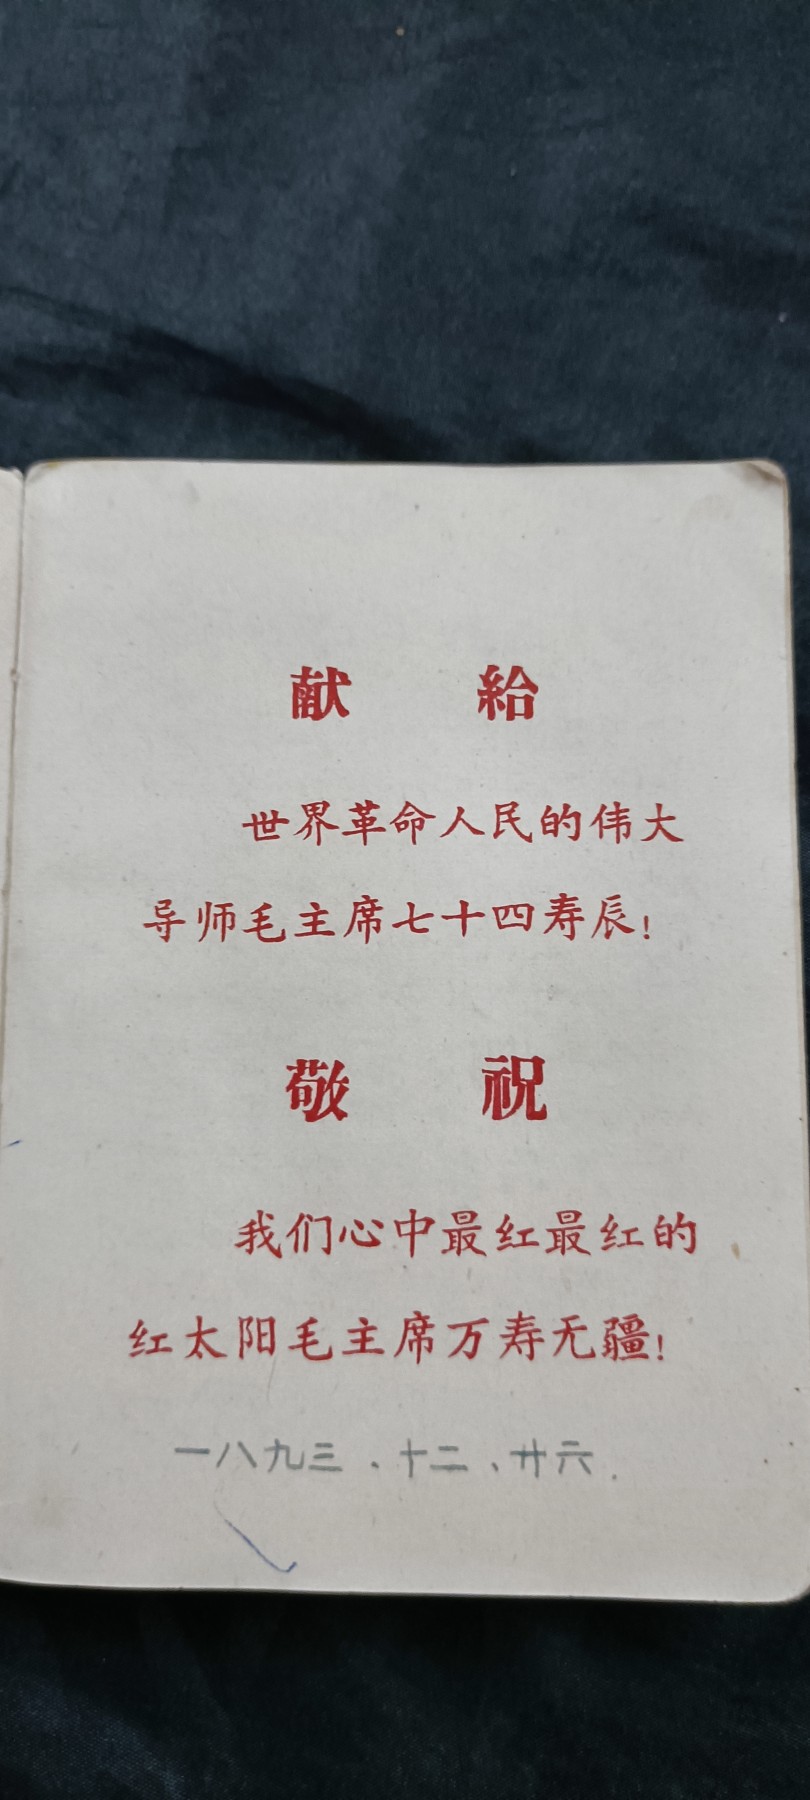 献 給
世界革命人民的伟大
导师毛主席七十四寿辰!
敬 祝
我们心中最红最红的
红太阳毛主席万寿无疆!
一八九三、十二、廿六.